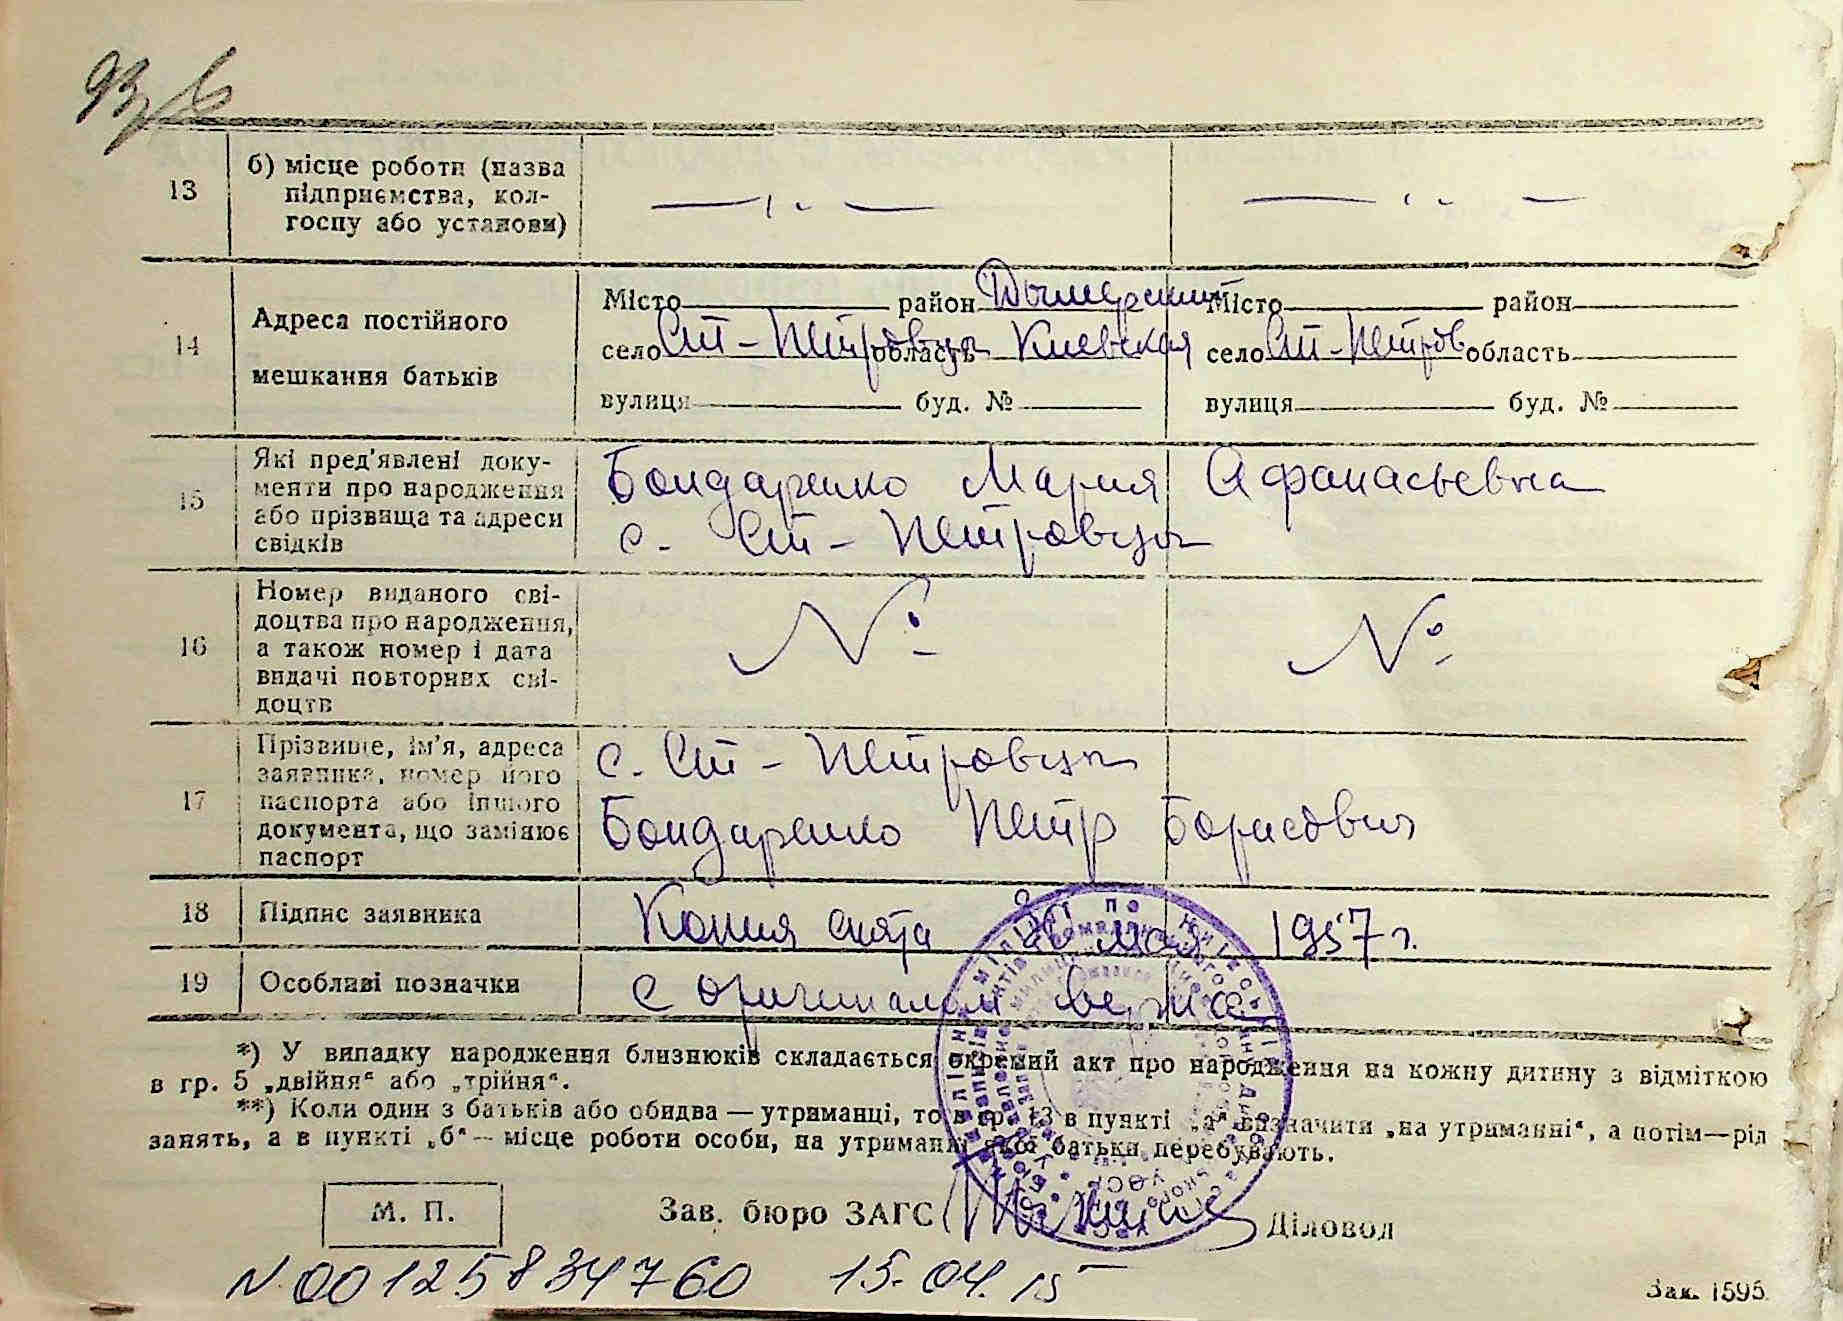 93
13 б) місце роботи (назва
підприємства, кол-
госпу або установи)
— " — — " —
14 Адреса постійного
мешкання батьків
Місто район Дымерский Місто район
село Ст-Петровцы область Киевская село Ст-Петров область
вулиця буд. № вулиця буд. №
15 Які пред'явлені доку-
менти про народження
або прізвища та адреси
свідків
Бондаренко Мария Афанасьевна
с. Ст-Петровцы
16 Номер виданого сві-
доцтва про народження,
а також номер і дата
видачі повторних сві-
доцтв
№ №
17 Прізвище, ім'я, адреса
заявника, номер його
паспорта або іншого
документа, що замінює
паспорт
с. Ст-Петровцы
Бондаренко Петр Борисович
18 Підпис заявника Копия снята 20 мая 1957 г.
19 Особливі позначки с оригиналом верна
*) У випадку народження близнюків складається окремий акт про народження на кожну дитину з відміткою
в гр. 5 „двійня“ або „трійня“.
**) Коли один з батьків або обидва — утриманці, то в гр. 13 в пункті „а“ визначити „на утриманні“, а потім—рід
занять, а в пункті „б“ — місце роботи особи, на утриманні якої батьки перебувають.
М. П. Зав. бюро ЗАГС Діловод
N. 00125834760 15.04.15
Зак. 1595